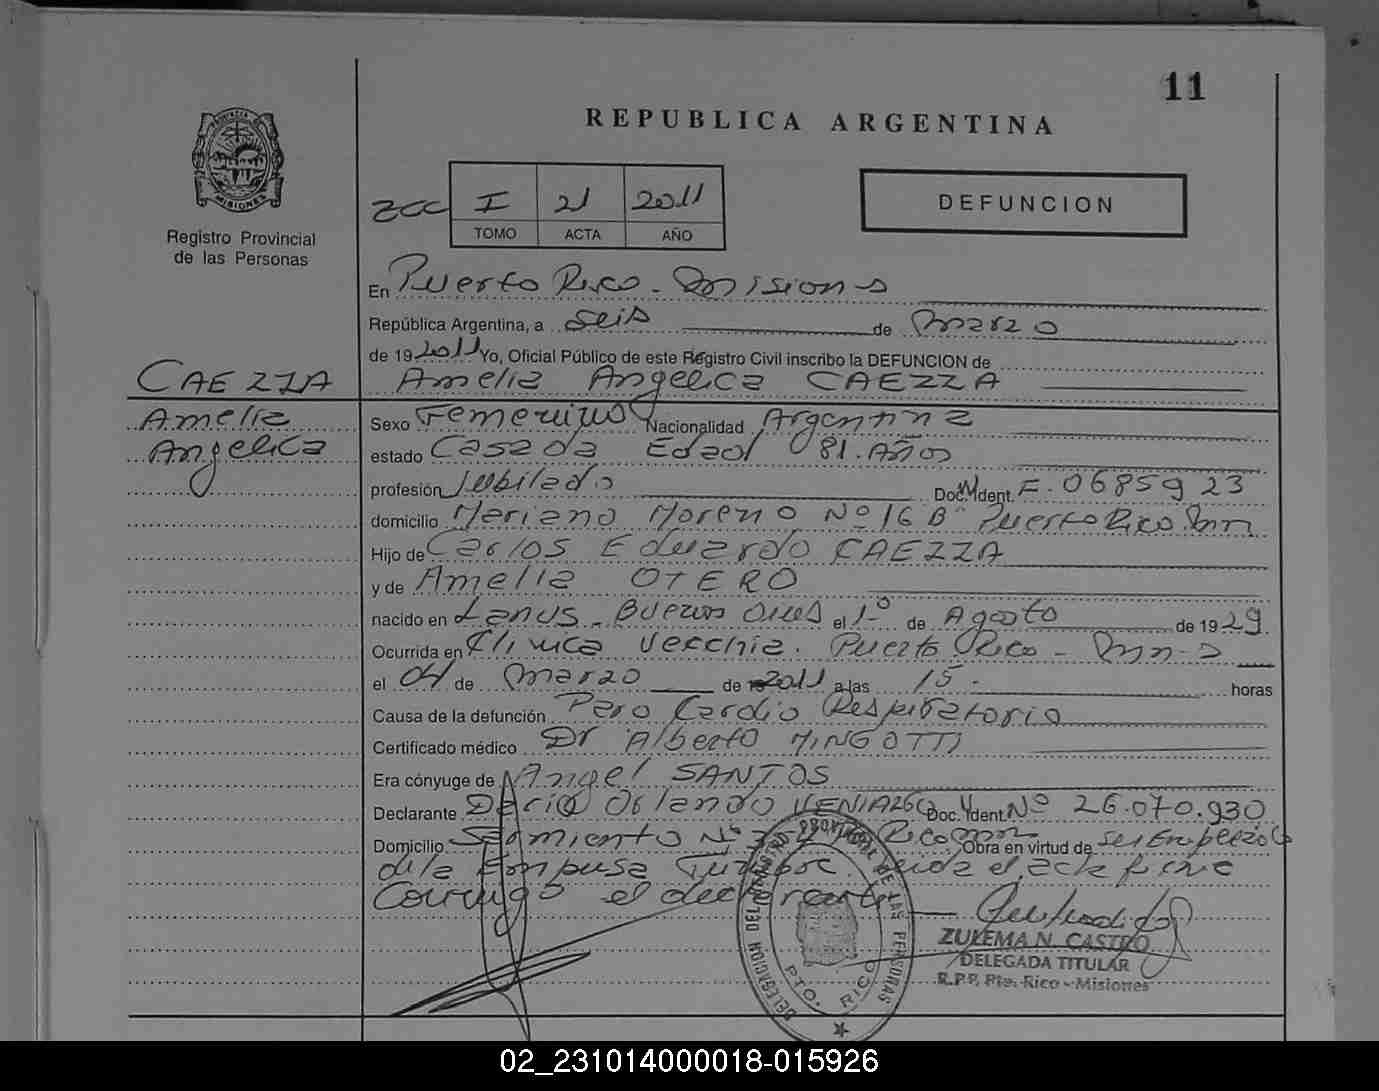 11
REPUBLICA ARGENTINA
PROVINCIA DE MISIONES
Registro Provincial
de las Personas
ZCC I 21 2011
TOMO ACTA AÑO
DEFUNCION
En Puerto Rico - Misiones
República Argentina, a seis de Marzo
de 19 2011 Yo, Oficial Público de este Registro Civil inscribo la DEFUNCION de
CAEZZA Amelia Angelica CAEZZA
Amelia
Angelica
Sexo Femenino Nacionalidad Argentina
estado Casada Edad 81 Años
profesión Jubilada Doc. Ident. F. 0685923
domicilio Mariano Moreno Nº 16 B Puerto Rico Mnes
Hijo de Carlos Eduardo CAEZZA
y de Amelia OTERO
nacido en Lanus - Buenos Aires el 1º de Agosto de 19 29
Ocurrida en Clinica Vecchia. Puerto Rico - Mnes
el 04 de Marzo de 2011 a las 15 horas
Causa de la defunción Paro Cardio Respiratorio
Certificado médico Dr Alberto MINGOTTI
Era cónyuge de Angel SANTOS
Declarante Dario Orlando Doc. Ident. Nº 26.070.930
Domicilio Sarmiento Nº Rico Mnes Obra en virtud de ser Empleado
de la Empresa leida el acta firma
conmigo el declarante
ZULEMA N. CASTRO
DELEGADA TITULAR
R.P.P. Pto. Rico - Misiones
DELEGACION DEL REGISTRO PROVINCIAL DE LAS PERSONAS
PTO. RICO
02_231014000018-015926